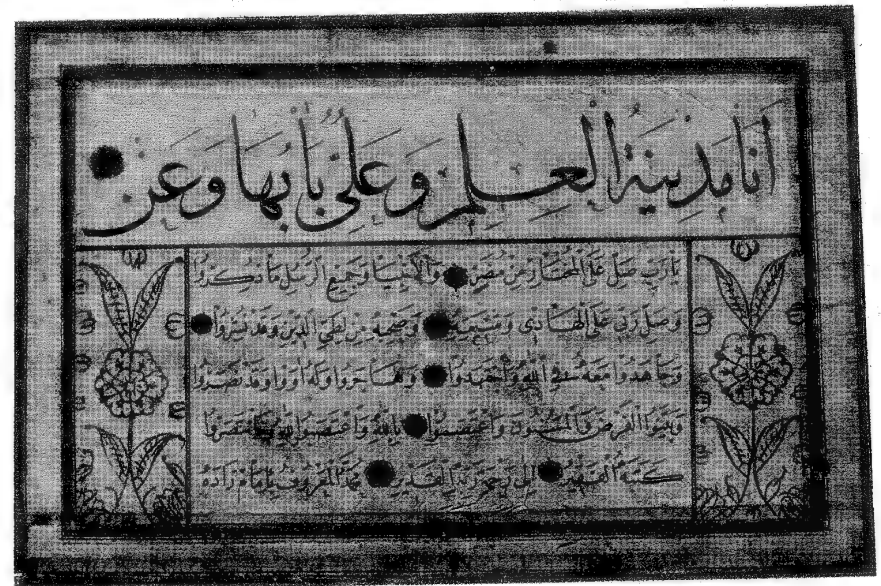 أنا مدينة العلم وعلي بابها وعن
يا رب صل على المختار من مضر والأنبيا وجميع الرسل ما ذكروا
وصل رب على الهادي وشيعته وصحبه من لطي الدين قد نشروا
وجاهدوا معه في الله واجتهدوا وهاجروا وله آووا وقد نصروا
وبينوا الفرض والمسنون واعتصبوا لله واعتصموا بالله فانتصروا
كتبه الفقير إلى رحمة ربه القدير محمد المعروف بإمام زاده